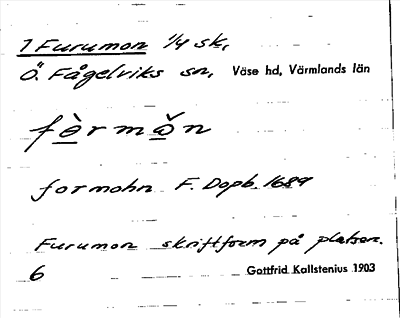 1 Furumon 1/4 sk,
Ö. Fågelviks sn, Väse hd, Värmlands län
fè̱rmǒ̱n
formohn F. Dopb. 1689
Furumon skriftform på platsen.
6 Gottfrid Kallstenius 1903